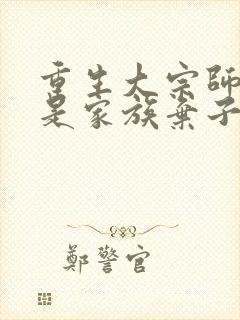 重生大宗師
是家族棄子
鄭警官